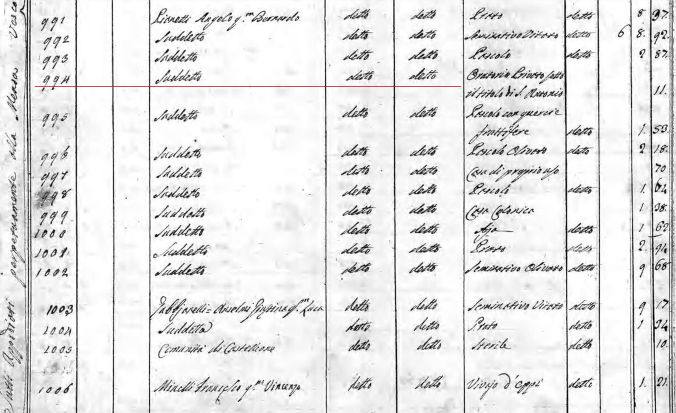 991 Lionetti Angelo q.m Bernardo detto detto Prato detto 8. 97.
992 Suddetto detto detto Seminativo Vitato detto 6 8. 92.
993 Suddetto detto detto Pascolo detto 2 87.
994 Suddetto detto detto Oratorio Privato sotto
il titolo di S. 11.
995 Suddetto detto detto Pascolo con querce
fruttifere detto 1. 53.
996 Suddetto detto detto Pascolo Olivato detto 2 18.
997 Suddetto detto detto Casa di proprio uso 70
998 Suddetto detto detto Pascolo detto 1
999 Suddetto detto detto Casa Colonica 1 38.
1000 Suddetto detto detto Aja detto 1 62
1001 Suddetto detto detto Prato detto 2. 94
1002 Suddetto detto detto Seminativo Olivato detto 9 68
1003 Anselmi q.m Luca detto detto Seminativo Vitato detto 9 17
1004 Suddetta detto detto Prato detto 1 34
1005 Comunità di detto detto Sterile detto 10.
1006 Minelli q.m Vincenzo detto detto d'oppi detto 1. 21.
alla Mensa